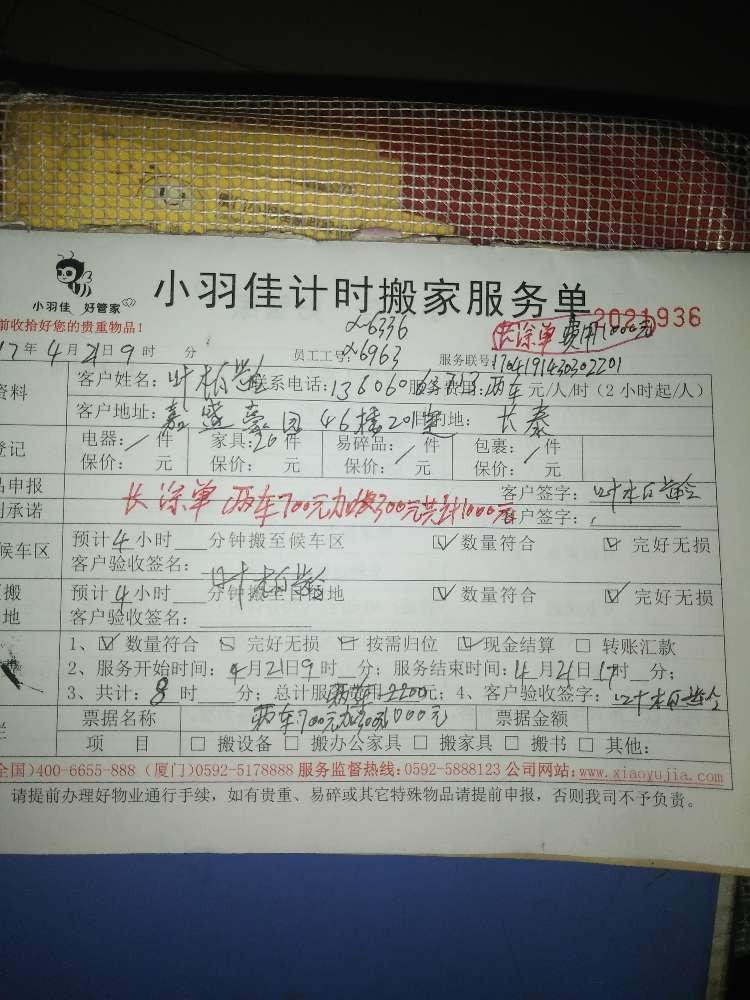 小羽佳 好管家
小羽佳计时搬家服务单
2021936
前收拾好您的贵重物品!
2-6336
长途单 费用1000元
17年4月21日9时 分 员工工号:2-6963 服务联号:1704191430302201
资料 客户姓名:叶柏龄 联系电话: 服务费用:两车元/人/时(2小时起/人)
客户地址:嘉盛豪园46楼201 目的地:长泰
登记 电器:/件 家具:26件 易碎品:/件 包裹:/件
保价: 元 保价: 元 保价:/元 保价: 元
品申报 客户签字:叶柏龄
长途单 两车700元加收300元共计1000元
承诺 客户签字:
候车区 预计4小时 分钟搬至候车区 ☑数量符合 ☑完好无损
客户验收签名:叶柏龄
搬 预计4小时 分钟搬至目的地 ☑数量符合 ☑完好无损
地 客户验收签名:
1、☑数量符合 ☑完好无损 ☑按需归位 ☑现金结算 □转账汇款
2、服务开始时间:4月21日9时 分;服务结束时间:4月21日17时 分;
3、共计:8时 分;总计服务费用:2200元;4、客户验收签字:叶柏龄
票据名称 两车700元加300元1000元 票据金额
项 目 □搬设备 □搬办公家具 □搬家具 □搬书 □其他:
全国)400-6655-888(厦门)0592-5178888 服务监督热线:0592-5888123 公司网站:www.xiaoyujia.com
请提前办理好物业通行手续,如有贵重、易碎或其它特殊物品请提前申报,否则我司不予负责。